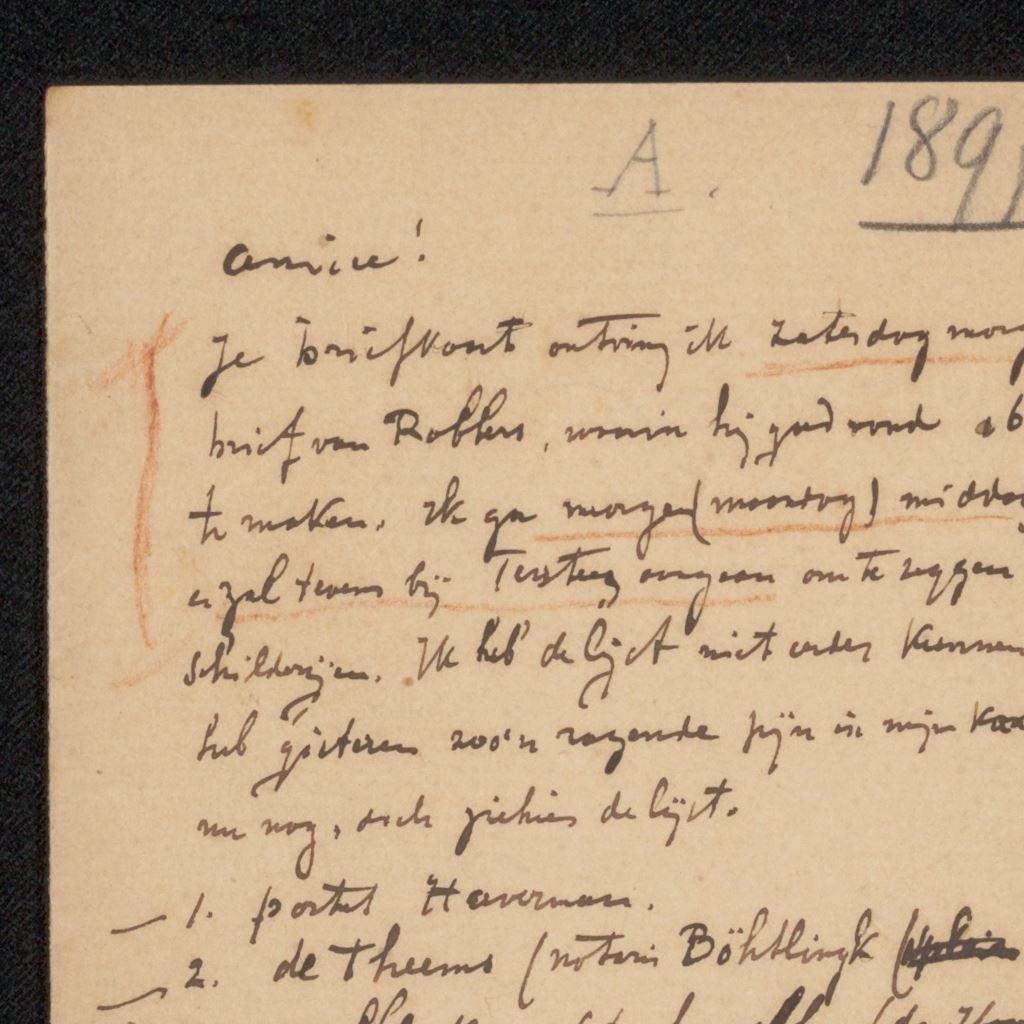 A. 189
Amice!
Je briefkaart ontving ik zaterdag morg
brief van Robbers, waarin hij goed vond ab
te maken. Ik ga morgen (maandag) middag
en zal tevens bij Tersteeg aangaan om te zeggen
schilderijen. Ik heb de lijst niet eerder kunnen
heb gisteren zoo'n razende pijn in mijn
nu nog, doch ziehier de lijst.
1. portret Haverman.
2. de Theems (notaris Böhtlingk